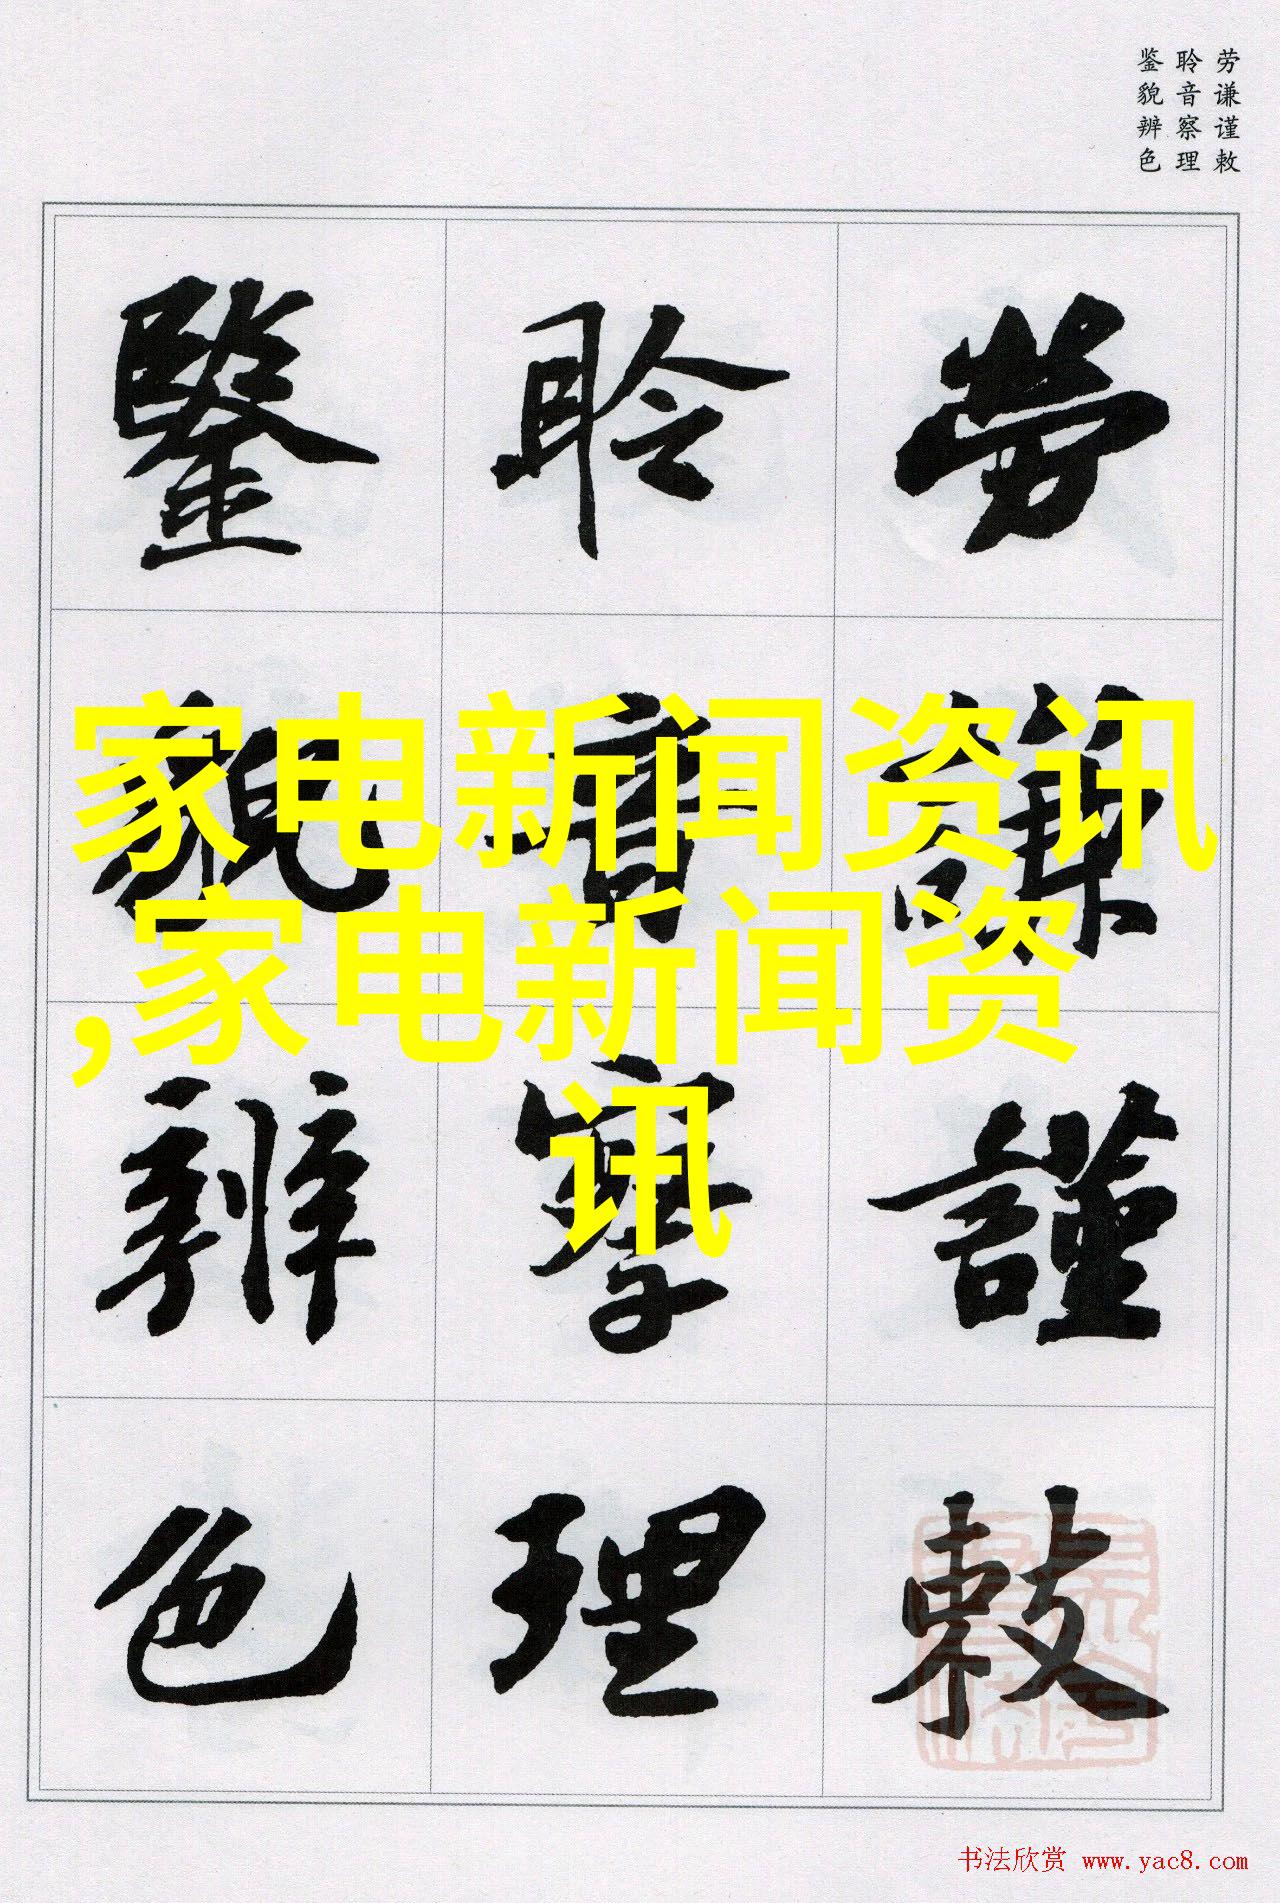 劳谦谨敕
聆音察理
鉴貌辨色
勞謙謹敕
聆音察理
鑒貌辨色
家电新闻资讯
,家电新闻资
讯
书法欣赏 www.yac8.com